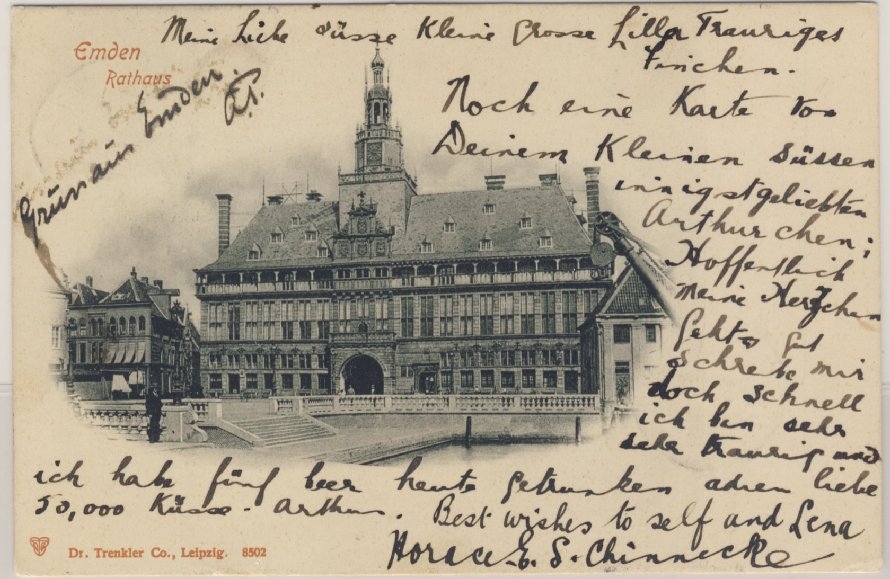 Emden
Rathaus
Gruss aus Emden.
Meine Liebe süsse Kleine Grosse Lilla Trauriges
Finchen.
Noch eine Karte von
Deinem Kleinen süssen
innigstgeliebten
Arthurchen;
Hoffentlich
meine Herzchen
geht's gut
schreibe mir
doch schnell
ich bin sehr
sehr traurig und
ich habe fünf beer heute getrunken adieu liebe
50,000 Küsse. Arthur.
Best wishes to self and Lena
Horace E. S. Chinnecke
Dr. Trenkler Co., Leipzig. 8502